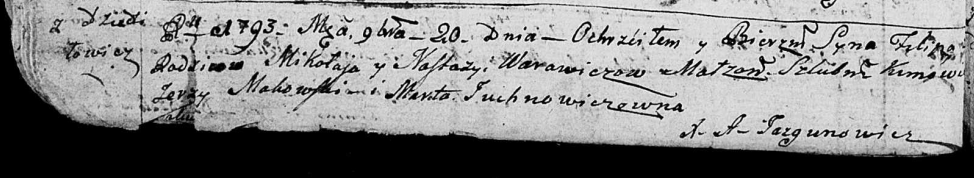 z Dziedi
łowicz
Rku 1793 Mca 9bra 20 Dnia Ochrzciłem y Bierzm. Syna Filipa
Rodzicow Mikołaja y Nastazyi Warawiczow Małzon. Szlubn. Kumowie
Jerzy Makowski i Marta Juchnowiczowna
X. A. Jazgunowicz